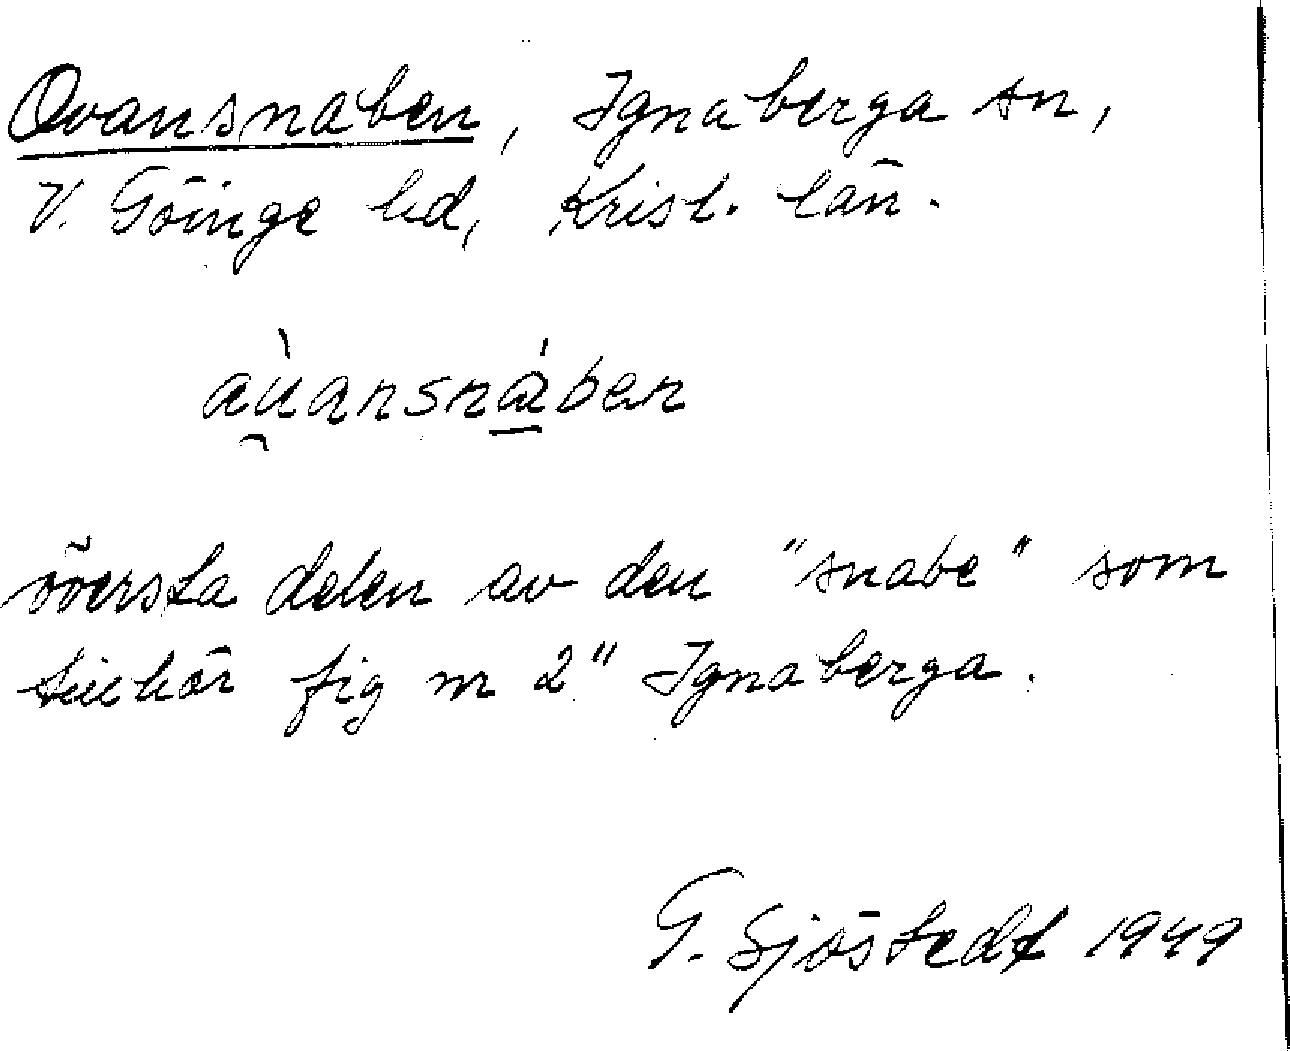 Ovansnaben, Ignaberga sn,
V. Göinge hd, Krist. län.
aù̯ansnáben
översta delen av den "snabe" som
tillhör fig nr 2" Ignaberga.
G. Sjöstedt 1949